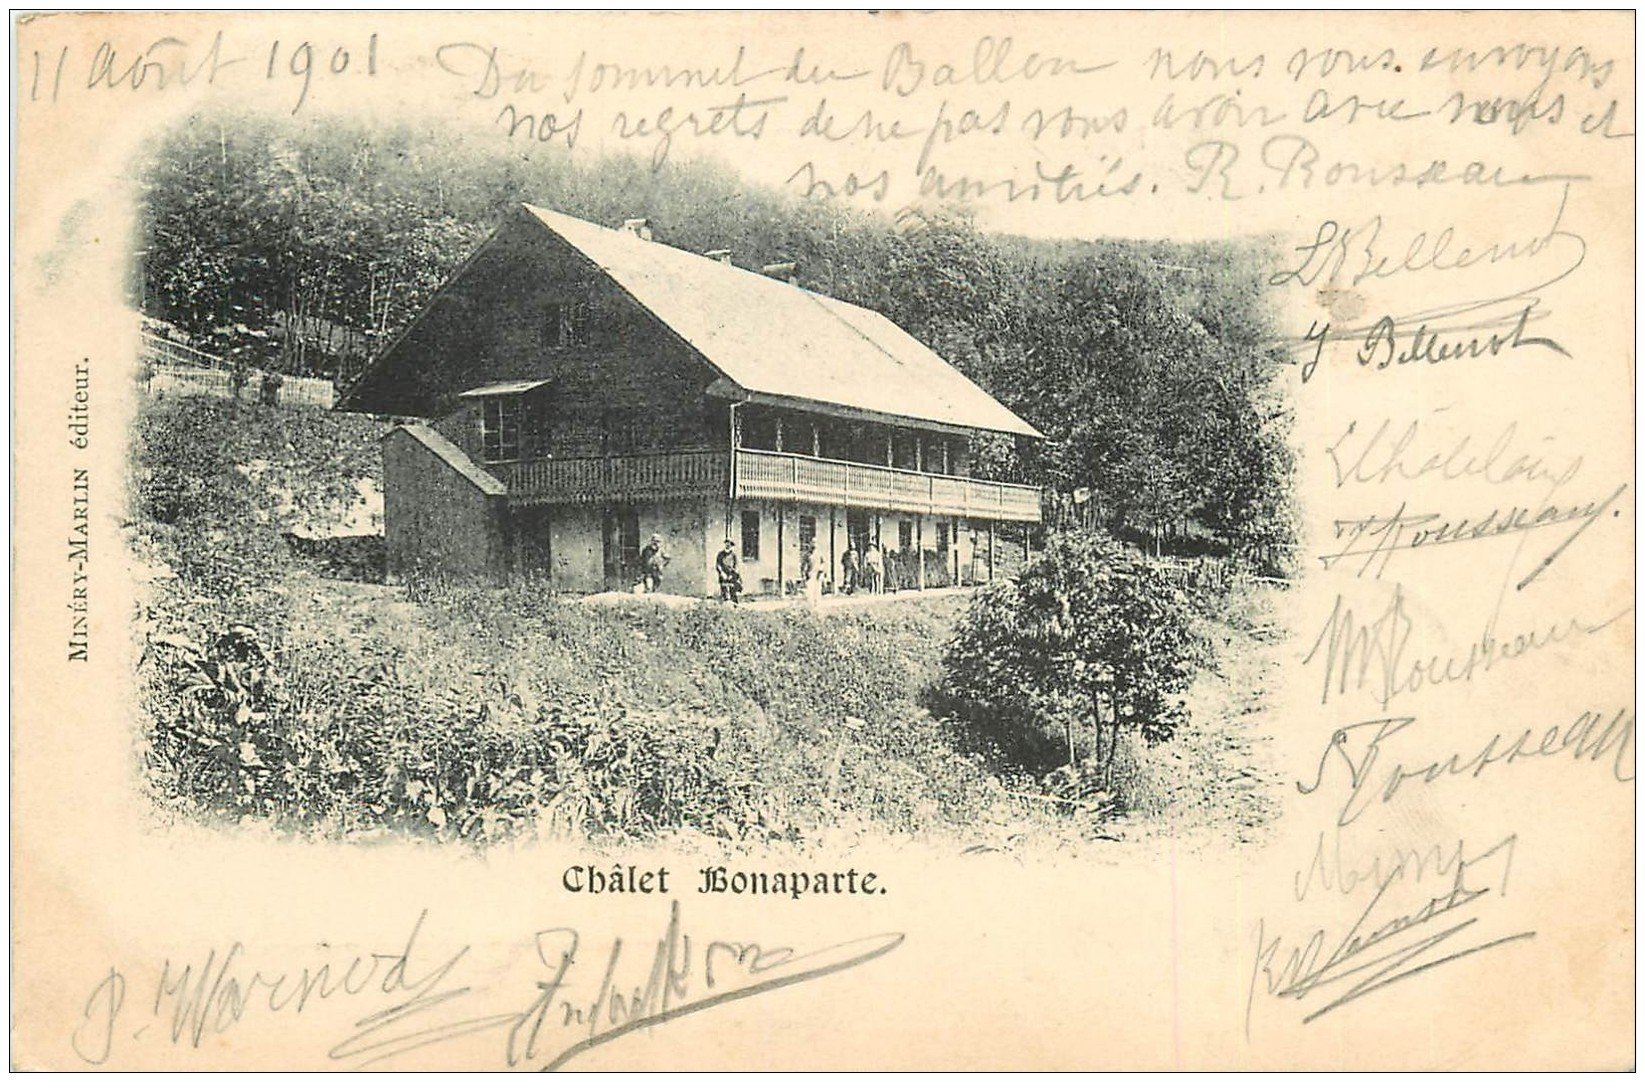 11 Août 1901 Du sommet du Ballon nous vous envoyons
nos regrets de ne pas vous avoir avec nous et
nos amitiés. R. Rousseau
L Bellenot
J Bellenot
Rousseau.
M Rousseau
S Rousseau
MINÉRY-MARLIN éditeur.
Châlet Bonaparte.
P. Warnod